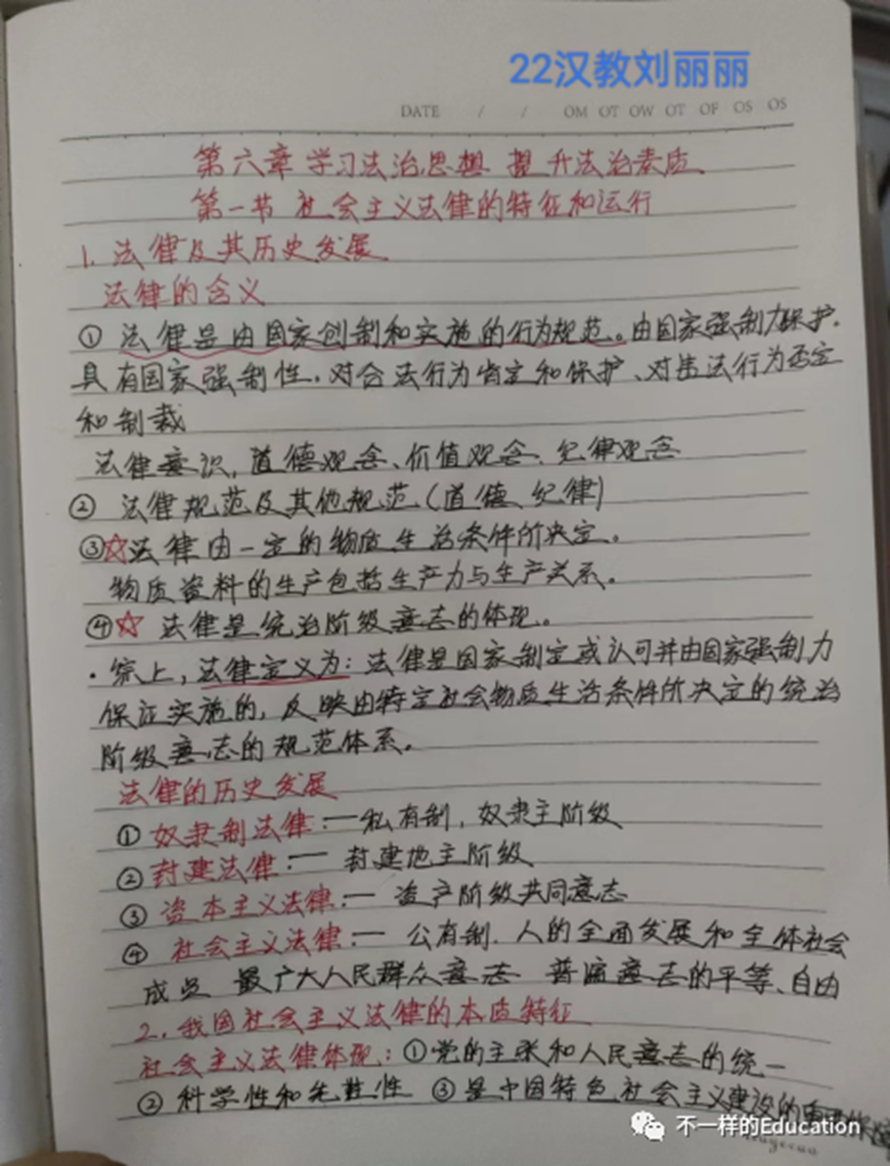 22汉教刘丽丽
DATE / / OM OT OW OT OF OS OS
第六章 学习法治思想 提升法治素质
第一节 社会主义法律的特征和运行
1. 法律及其历史发展
法律的含义
① 法律是由国家创制和实施的行为规范。由国家强制力保护.
具有国家强制性，对合法行为肯定和保护、对违法行为否定
和制裁
法律意识，道德观念、价值观念、纪律观念
② 法律规范及其他规范(道德、纪律)
③☆法律由一定的物质生活条件所决定。
物质资料的生产包括生产力与生产关系。
④☆ 法律是统治阶级意志的体现。
·综上，法律定义为：法律是国家制定或认可并由国家强制力
保证实施的，反映由特定社会物质生活条件所决定的统治
阶级意志的规范体系。
法律的历史发展
① 奴隶制法律：一私有制，奴隶主阶级
② 封建法律：一 封建地主阶级
③ 资本主义法律：一 资产阶级共同意志
④ 社会主义法律：一 公有制. 人的全面发展和全体社会
成员 最广大人民群众意志 普遍意志的平等、自由
2. 我国社会主义法律的本质特征
社会主义法律体现：①党的主张和人民意志的统一
② 科学性和先进性 ③是中国特色社会主义建设的重要保障
不一样的Education